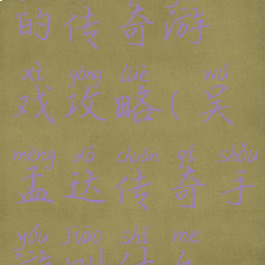 的传奇游
xì gōng lüè wú
戏攻略(吴
mèng dá chuán qí shǒu
孟达传奇手
yóu jiào shí me